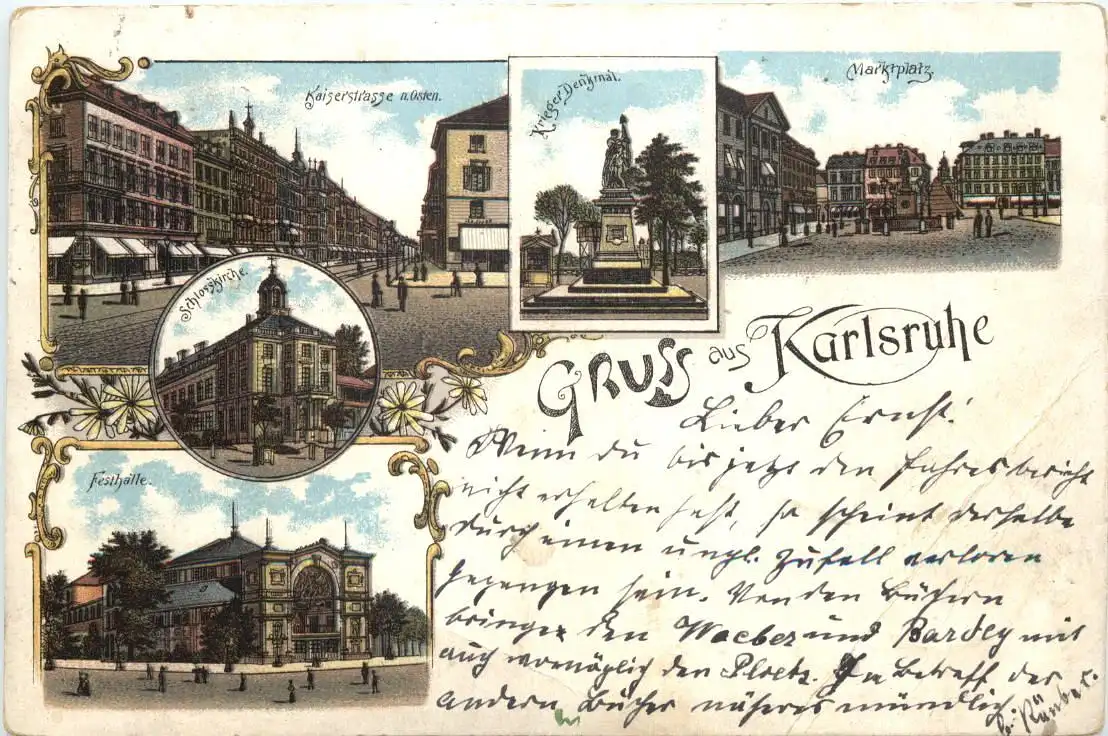 Kaiserstrasse n. Osten.
Krieger Denkmal.
Marktplatz.
Schlosskirche.
Festhalle.
Gruss aus Karlsruhe
Lieber Ernst!
Wenn du bis jetzt den Jahresbericht
nicht erhalten hast, so scheint derselbe
durch einen ungl. Zufall verloren
gegangen sein. Von den Büchern
bringe den Waeber und Bardey mit
auch womöglich den Ploetz. In Betreff der
andern Bücher näheres mündlich.